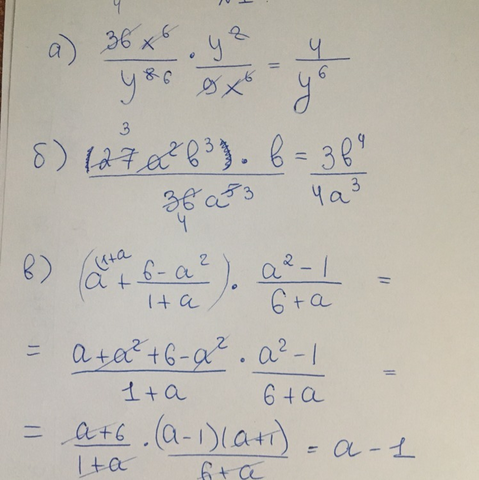 а) 36x⁶/y⁸ ⁶ · y²/9x⁶ = 4/y⁶
б) 3 (27a²b³) · b / 36 4 a⁵ ³ = 3b⁴/4a³
в) (a⁽¹⁺ᵃ + 6-a²/1+a) · a²-1/6+a =
= a+a²+6-a²/1+a · a²-1/6+a =
= a+6/1+a · (a-1)(a+1)/6+a = a-1